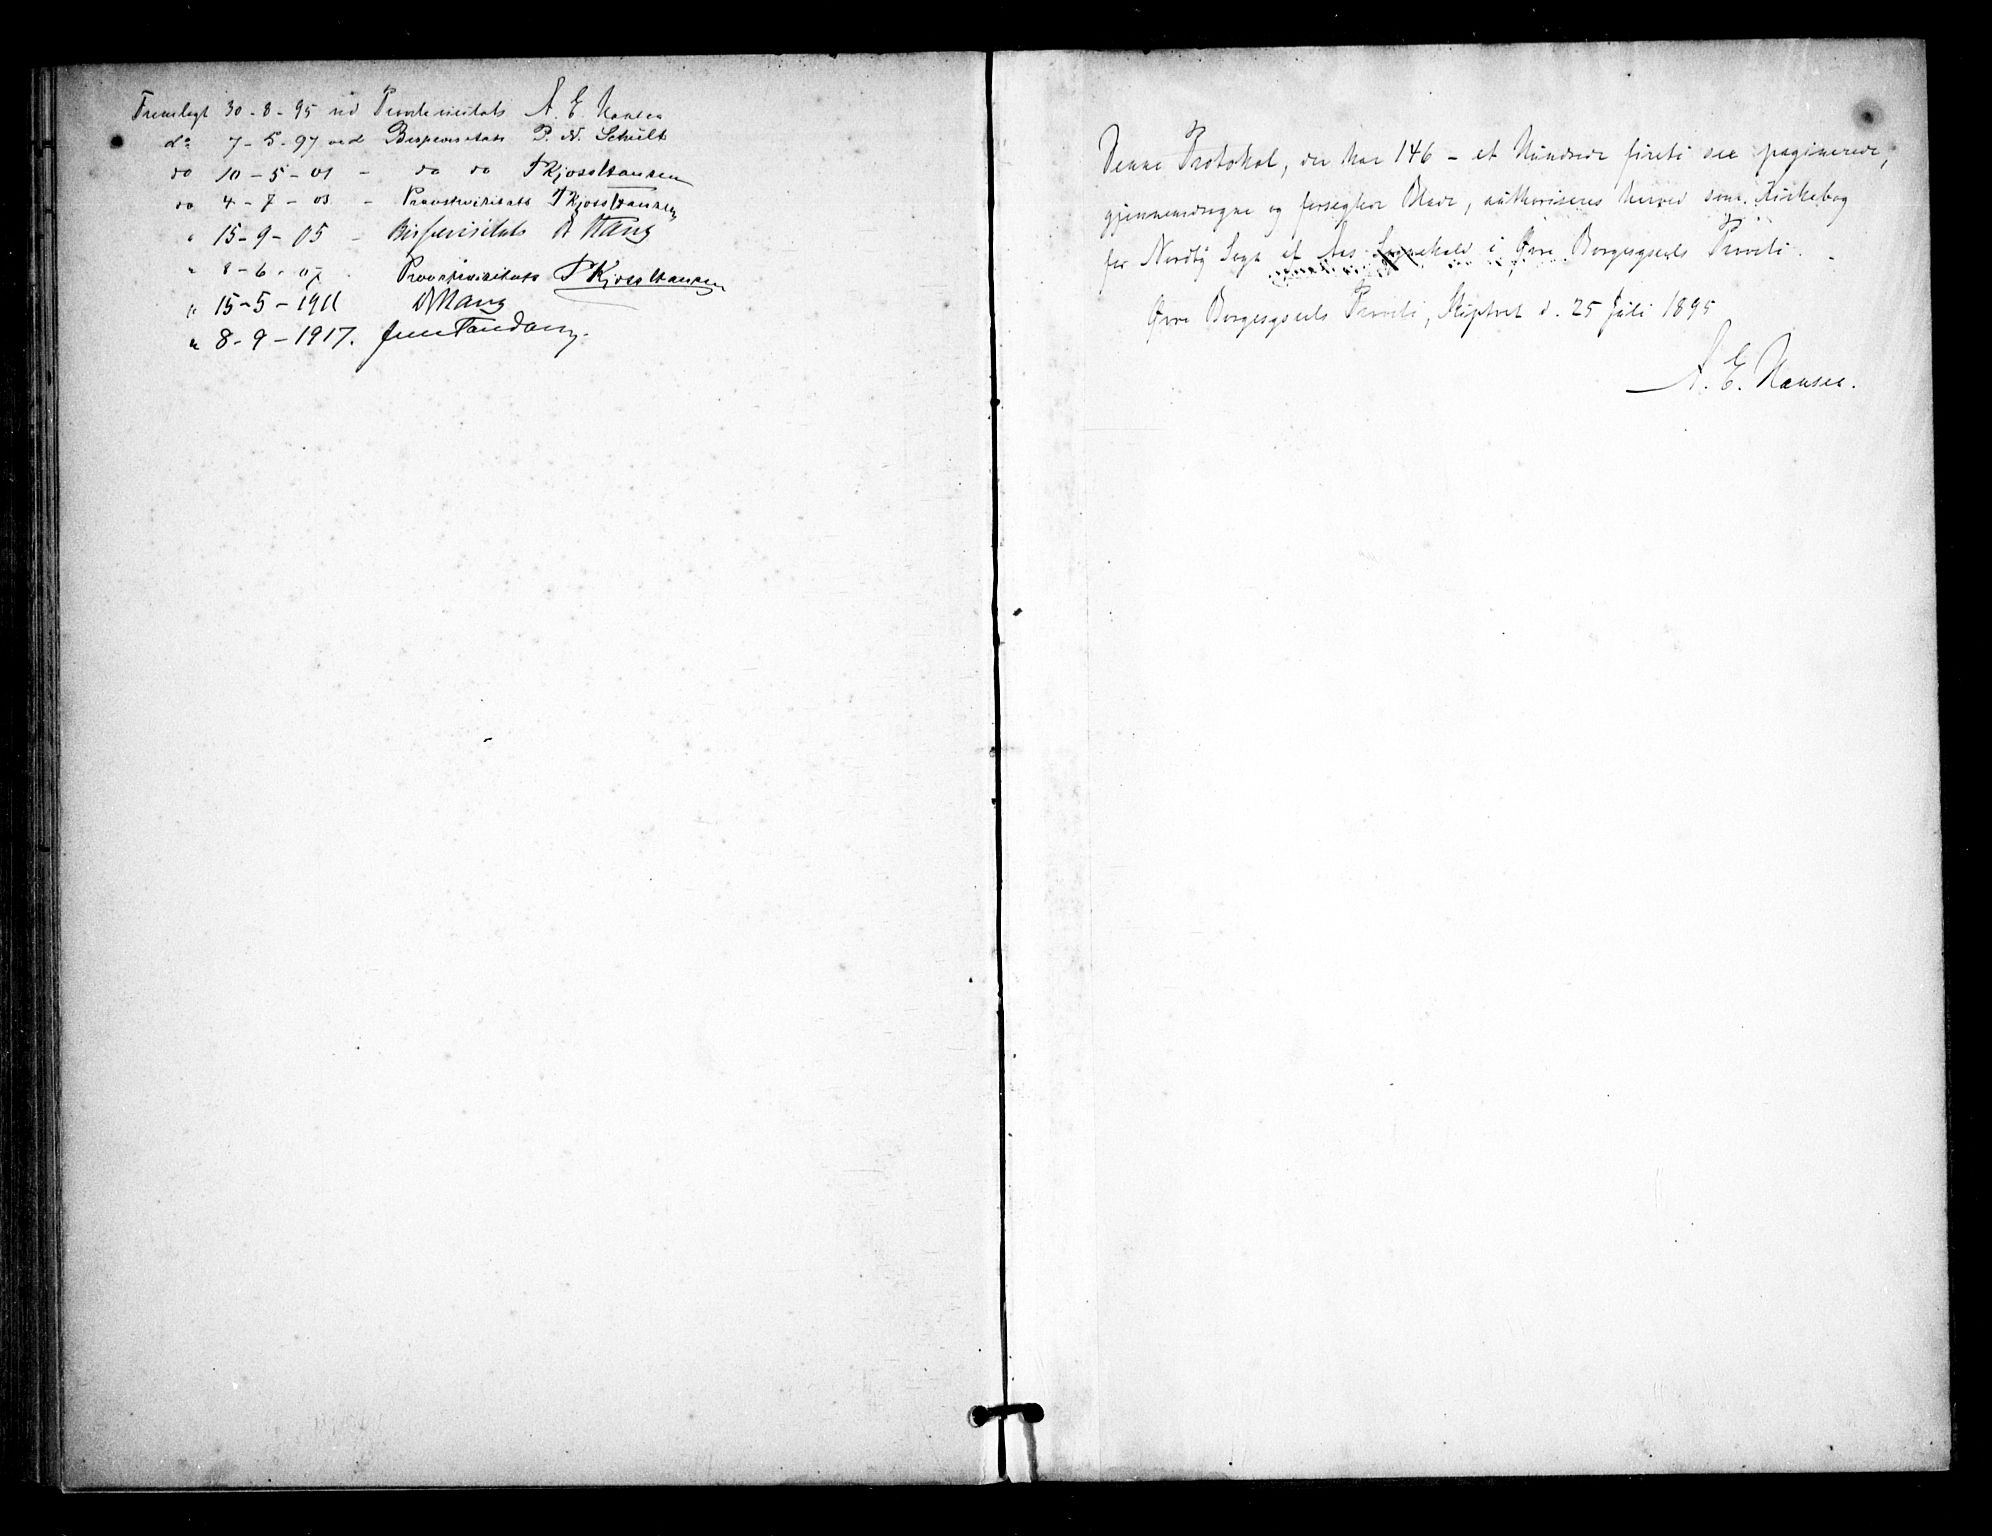 Fremlagt 30-8-95 ved Provstevisitats A. E. Hansen
do 7-5-97 ved Bispevisitats P. N. Schult
do 10-5-01 - do do P Kjoss Hansen
do 4-7-03 - Provstevisitats P Kjoss Hansen
" 15-9-05 - Bispevisitats
" 8-6-07 Provstevisitats P Kjoss Hansen
" 15-5-1911
" 8-9-1917. Jens Tandberg.
Denne Protokol, der har 146 - et Hundrede fireti sex paginerede,
gjennemdragne og forseglede Blade, authoriseres herved som Kirkebog
for Nordby Sogn af Aas Sognekald i Øvre Borgesyssels Provsti. -
Øvre Borgesyssels Provsti, Skiptvet d. 25 Juli 1895
A. E. Hansen.